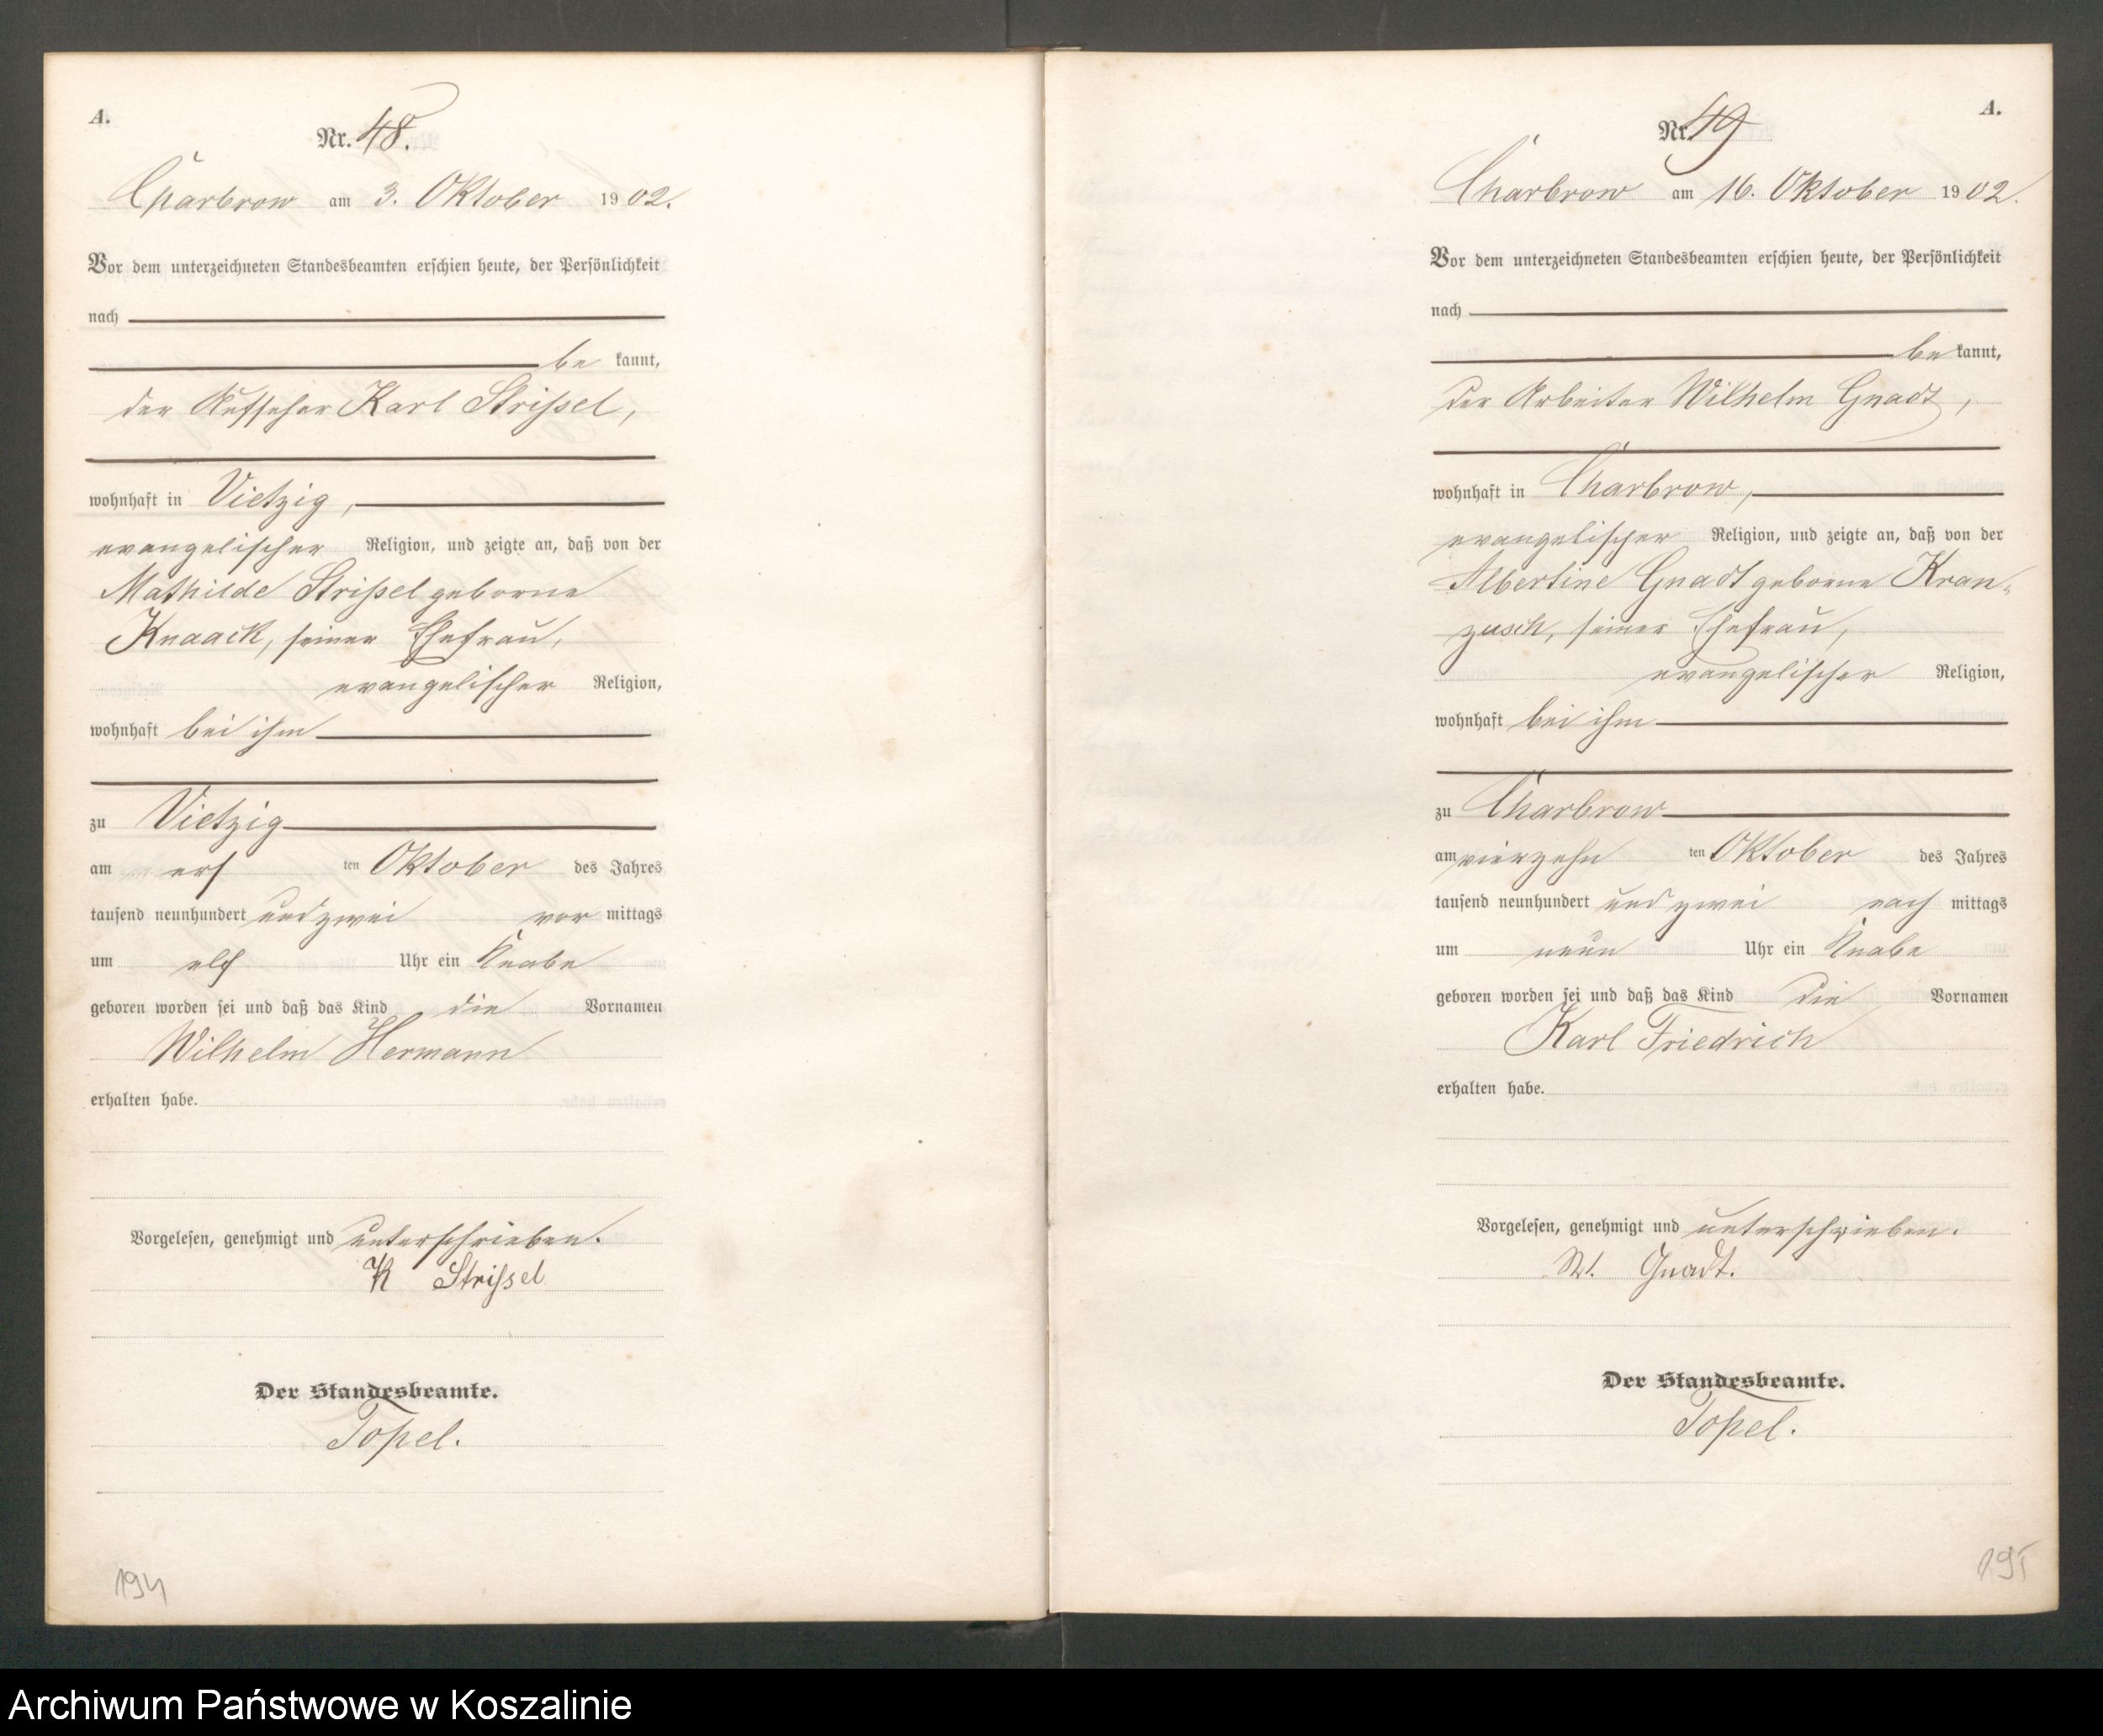 A.
Nr. 48.
Charbrow am 3. Oktober 1902.
Vor dem unterzeichneten Standesbeamten erschien heute, der Persönlichkeit
nach
be kannt,
der Aufseher Karl Strißel,
wohnhaft in Vietzig,
evangelischer Religion, und zeigte an, daß von der
Mathilde Strißel geborne
Knaack, seiner Ehefrau,
evangelischer Religion,
wohnhaft bei ihm
zu Vietzig
am ersten Oktober des Jahres
tausend neunhundert und zwei vor mittags
um elf Uhr ein Knabe
geboren worden sei und daß das Kind die Vornamen
Wilhelm Hermann
erhalten habe.
Vorgelesen, genehmigt und unterschrieben.
K Strißel
Der Standesbeamte.
Topel.
194
A.
Nr. 49
Charbrow am 16. Oktober 1902.
Vor dem unterzeichneten Standesbeamten erschien heute, der Persönlichkeit
nach
be kannt,
der Arbeiter Wilhelm Gnadt,
wohnhaft in Charbrow,
evangelischer Religion, und zeigte an, daß von der
Albertine Gnadt geborne Kran-
zusch, seiner Ehefrau,
evangelischer Religion,
wohnhaft bei ihm
zu Charbrow
am vierzehn ten Oktober des Jahres
tausend neunhundert und zwei nach mittags
um neun Uhr ein Knabe
geboren worden sei und daß das Kind die Vornamen
Karl Friedrich
erhalten habe.
Vorgelesen, genehmigt und unterschrieben.
Gnadt.
Der Standesbeamte.
Topel.
195
Archiwum Państwowe w Koszalinie